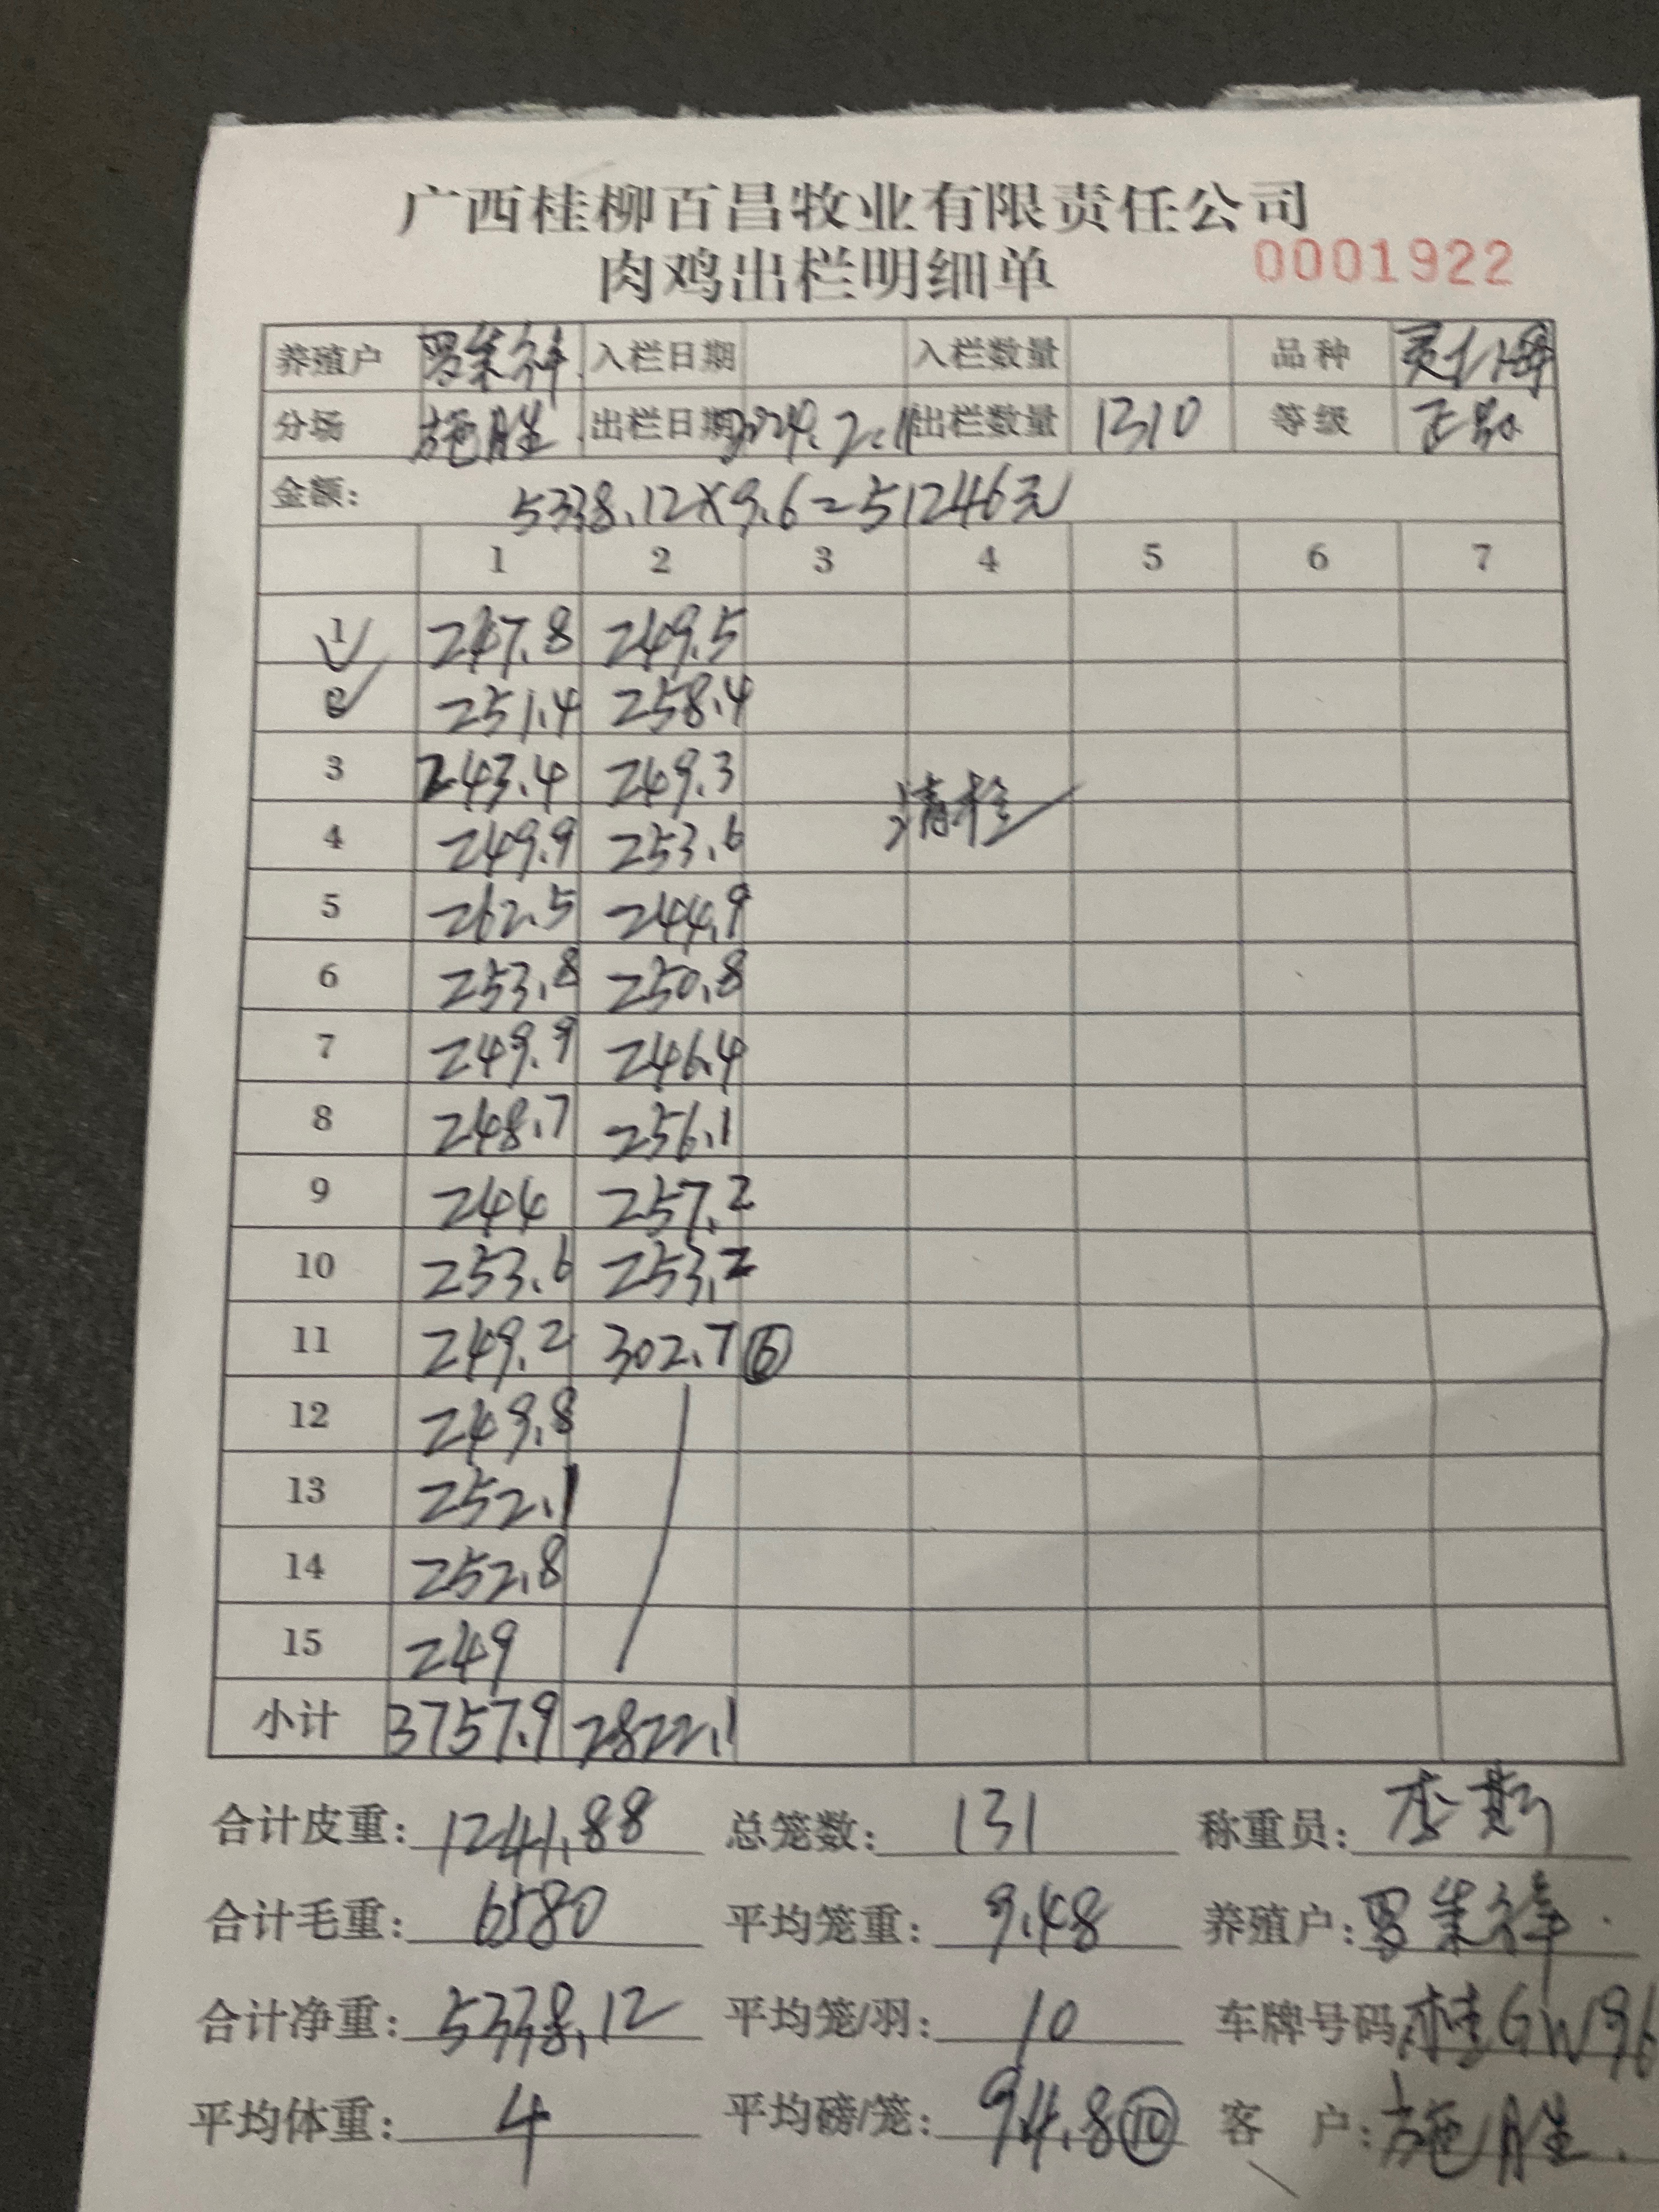 广西桂柳百昌牧业有限责任公司
肉鸡出栏明细单 0001922
养殖户 罗集祥 入栏日期 入栏数量 品种
分场 施胜 出栏日期 2024.2.11 出栏数量 1310 等级 正品
金额: 5338.12×9.6=51246元
1 2 3 4 5 6 7
1 247.8 249.5
2 251.4 258.4
3 243.4 249.3
清栏
4 249.9 253.6
5 262.5 244.9
6 253.8 250.8
7 249.9 246.4
8 248.7 256.1
9 244 257.2
10 253.6 253.2
11 249.2 302.7 ⑥
12 249.8
13 252.1
14 252.8
15 249
小计 3757.9 2822.1
合计皮重: 1241.88 总笼数: 131 称重员: 李
合计毛重: 6580 平均笼重: 9.48 养殖户: 罗集祥
合计净重: 5338.12 平均笼/羽: 10 车牌号码: 桂GW96
平均体重: 4 平均磅/笼: 94.8 ⑩ 客 户: 施胜